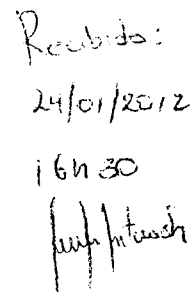 Recebido:
24/01/2012
16h30